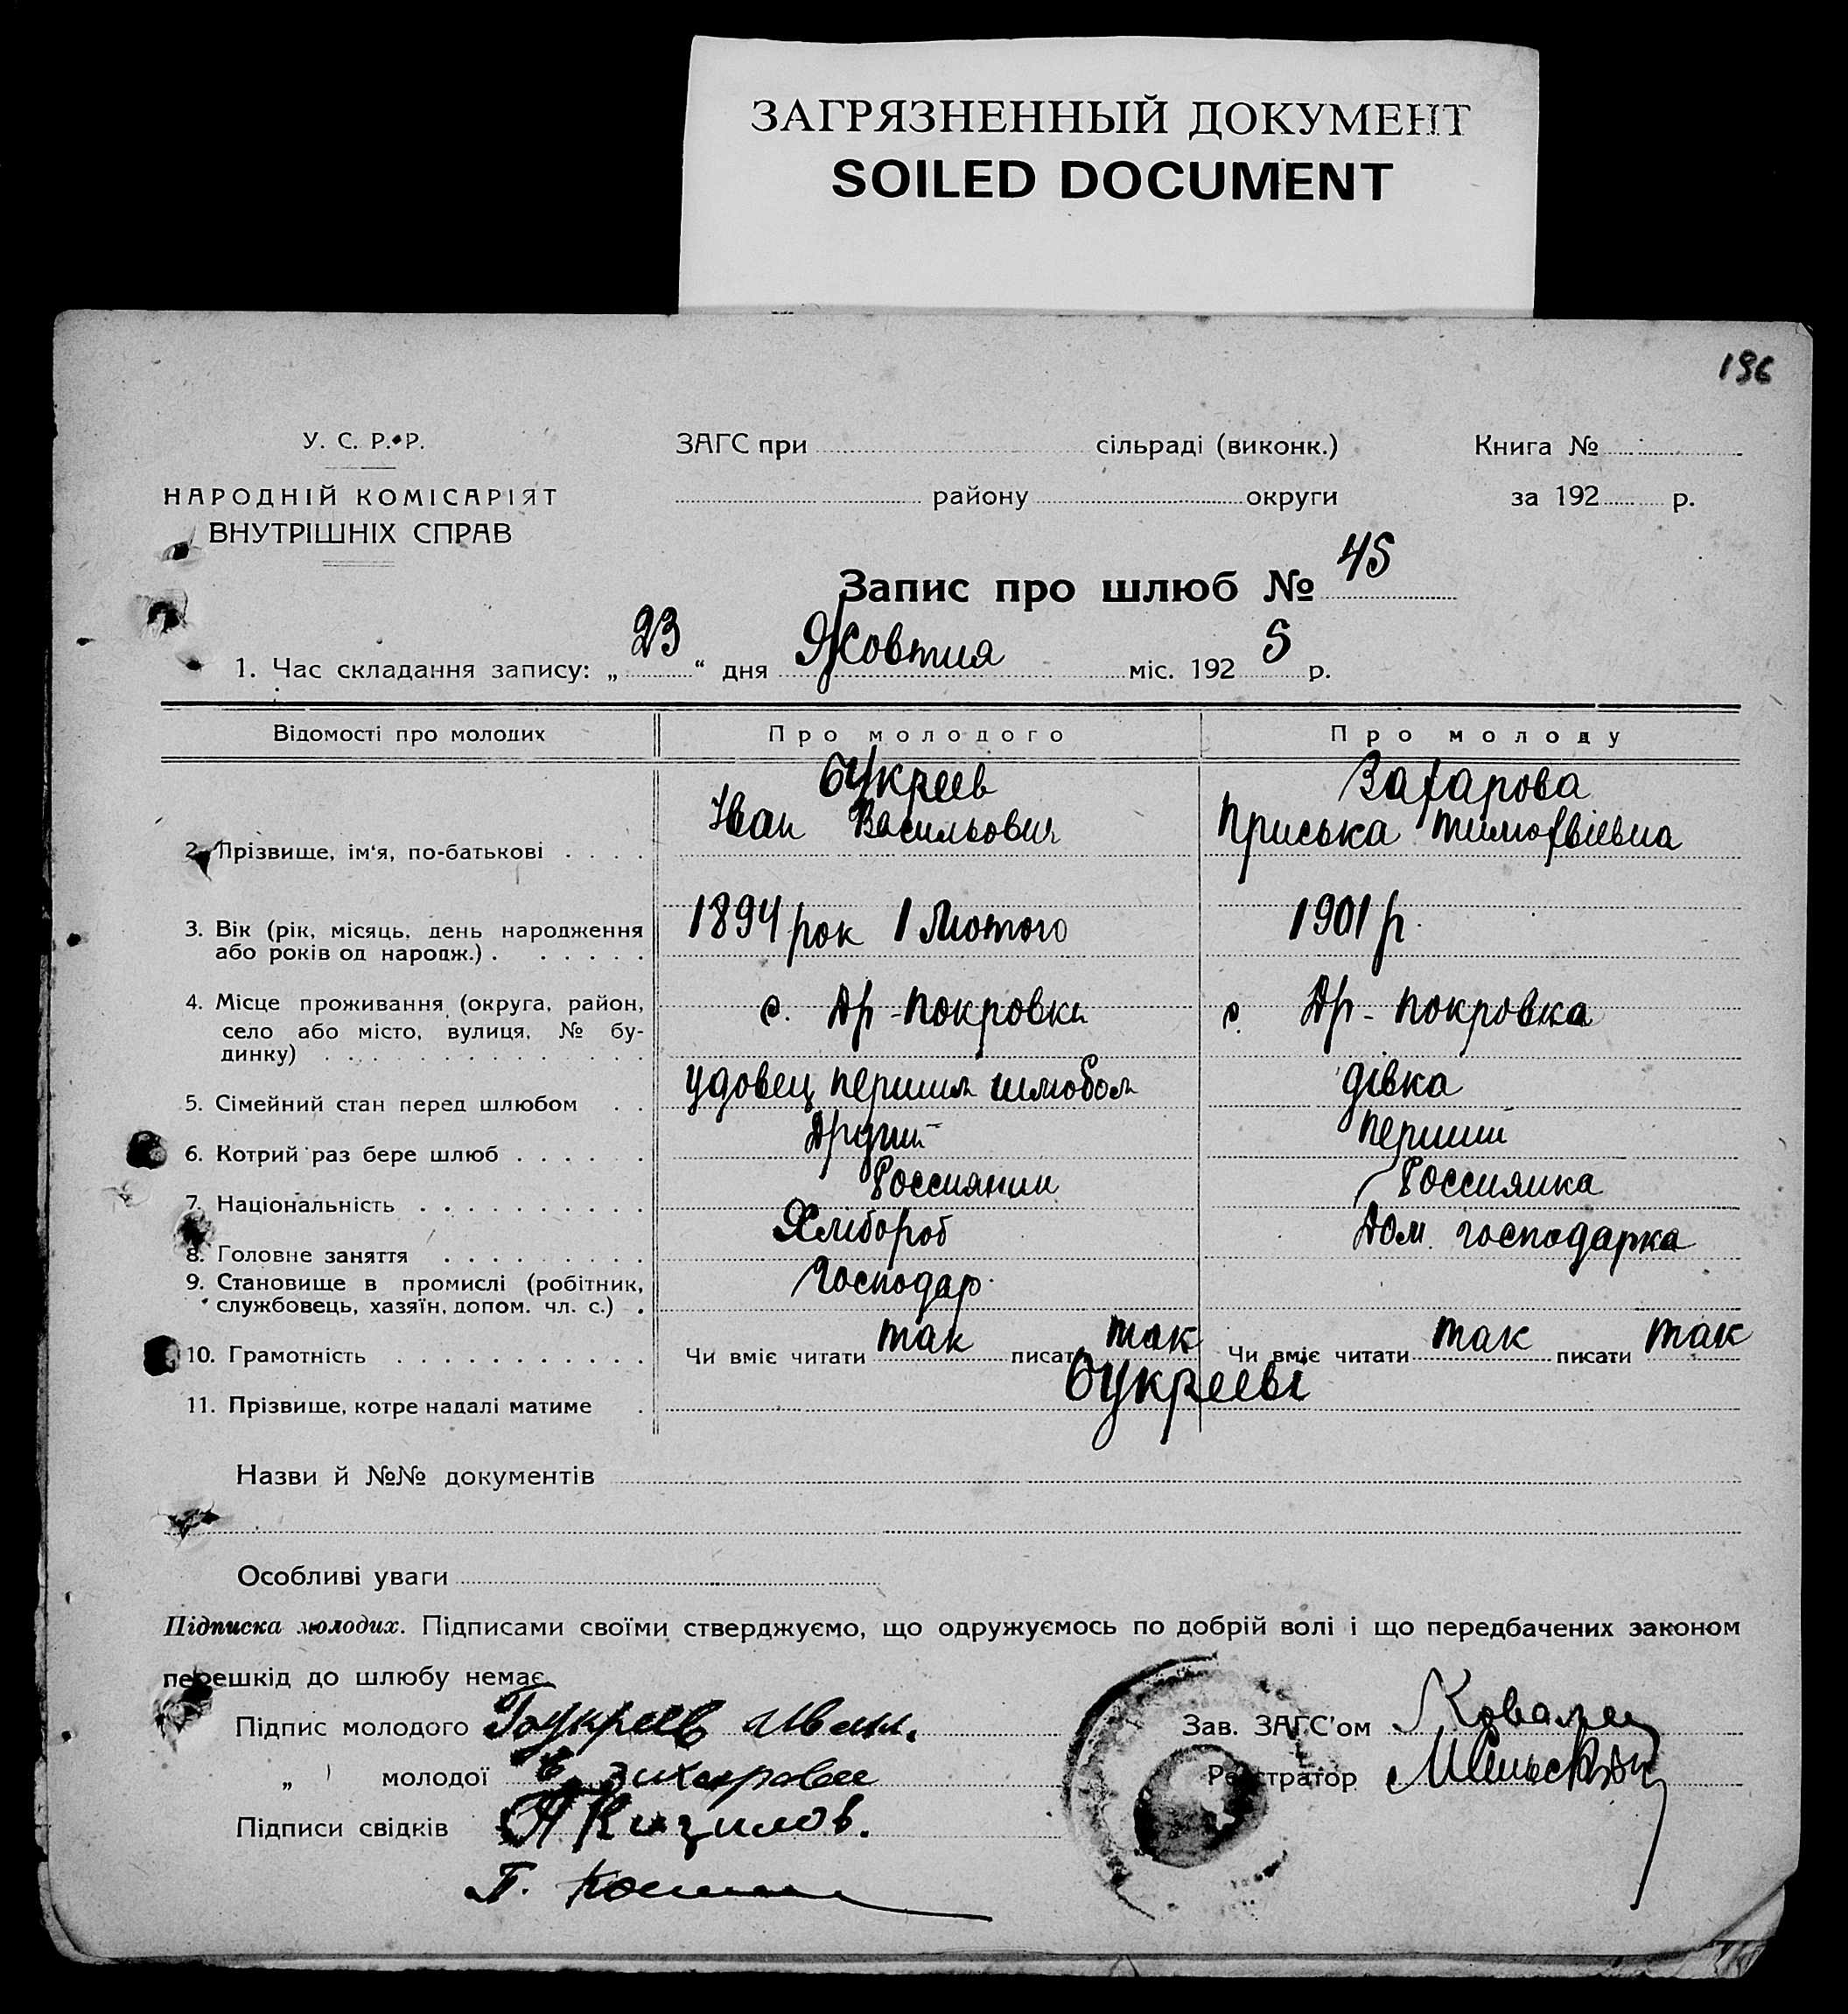 ЗАГРЯЗНЕННЫЙ ДОКУМЕНТ
SOILED DOCUMENT
196
У. С. Р. Р.
НАРОДНІЙ КОМІСАРІЯТ
ВНУТРІШНІХ СПРАВ
ЗАГС при сільраді (виконк.)
району округи
Книга №
за 192 р.
Запис про шлюб № 45
1. Час складання запису: „ 23 “ дня Жовтня міс. 192 5 р.
Відомості про молодих Про молодого Про молоду
Букреев Захарова
Іван Васильович Приська Тимофвіевна
2. Прізвище, ім'я, по-батькові
3. Вік (рік, місяць, день народження 1894 рок 1 Лютого 1901 р.
або років од народж.)
4. Місце проживання (округа, район, с. Др-Покровка с. Др-Покровка
село або місто, вулиця, № бу-
динку)
5. Сімейний стан перед шлюбом удовец першим шлюбом дівка
6. Котрий раз бере шлюб Другий перший
7. Національність Россиянин Россиянка
8. Головне заняття Хлібороб Дом. господарка
9. Становище в промислі (робітник, Господар
службовець, хазяїн, допом. чл. с.)
10. Грамотність Чи вміє читати так писати так Чи вміє читати так писати так
11. Прізвище, котре надалі матиме Букрееві
Назви й №№ документів
Особливі уваги
Підписка молодих. Підписами своїми стверджуємо, що одружуємось по добрій волі і що передбачених законом
перешкід до шлюбу немає.
Підпис молодого Букреев Иван. Зав. ЗАГС'ом
„ молодої Захарова Реєстратор
Підписи свідків